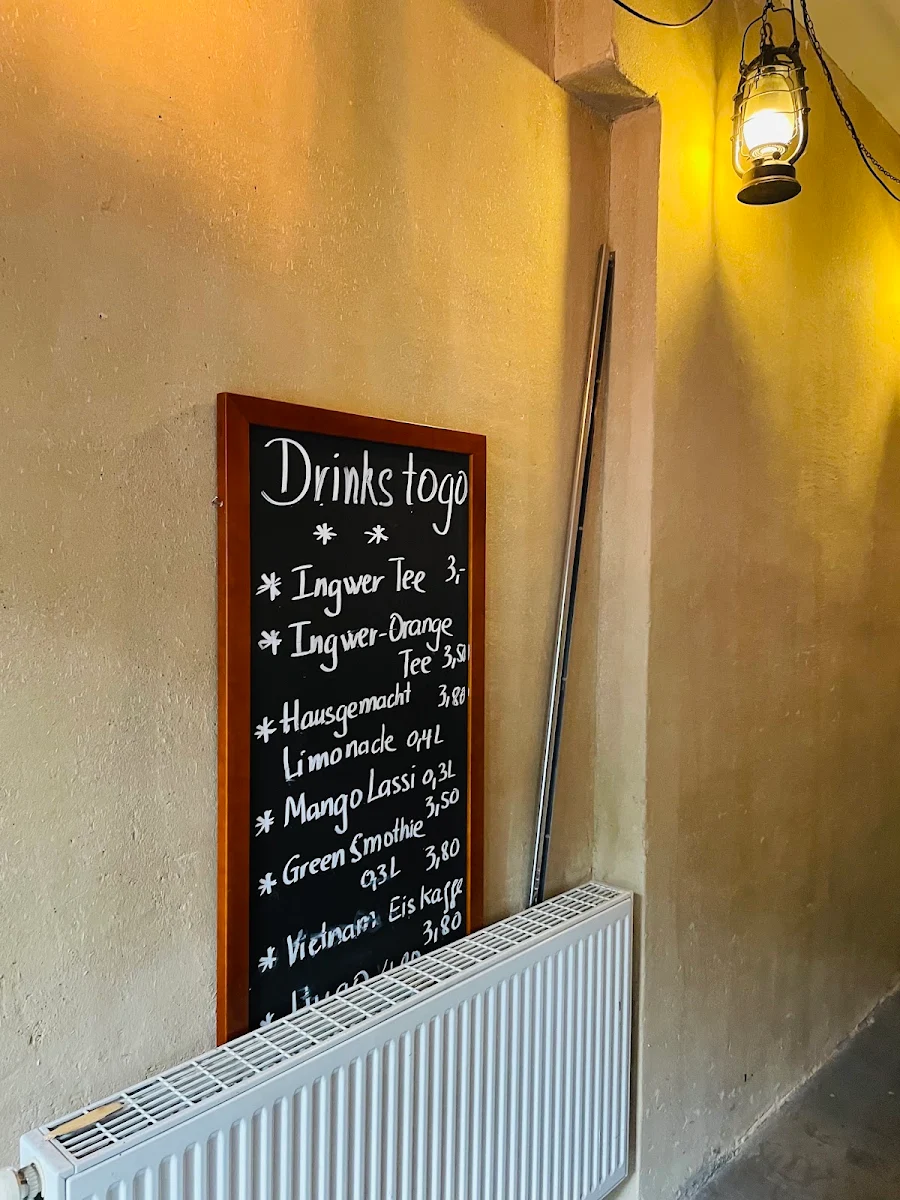 Drinks togo
* *
* Ingwer Tee 3,-
* Ingwer-Orange
Tee 3,50
* Hausgemacht 3,80
Limonade 0,4L
* Mango Lassi 0,3L
3,50
* Green Smothie
0,3L 3,80
* Vietnam Eiskaffe
3,80
*